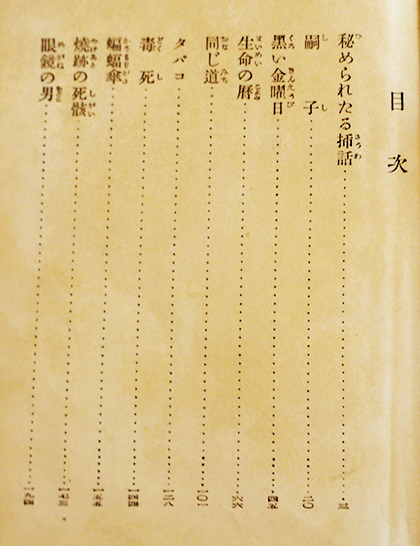 目次
秘められたる挿話……三
嗣子……二〇
黑い金曜日……四五
生命の暦……六六
同じ道……一〇一
タバコ……
毒死……一四四
蝙蝠傘……一五五
燒跡の死骸……一七三
眼鏡の男……一九四